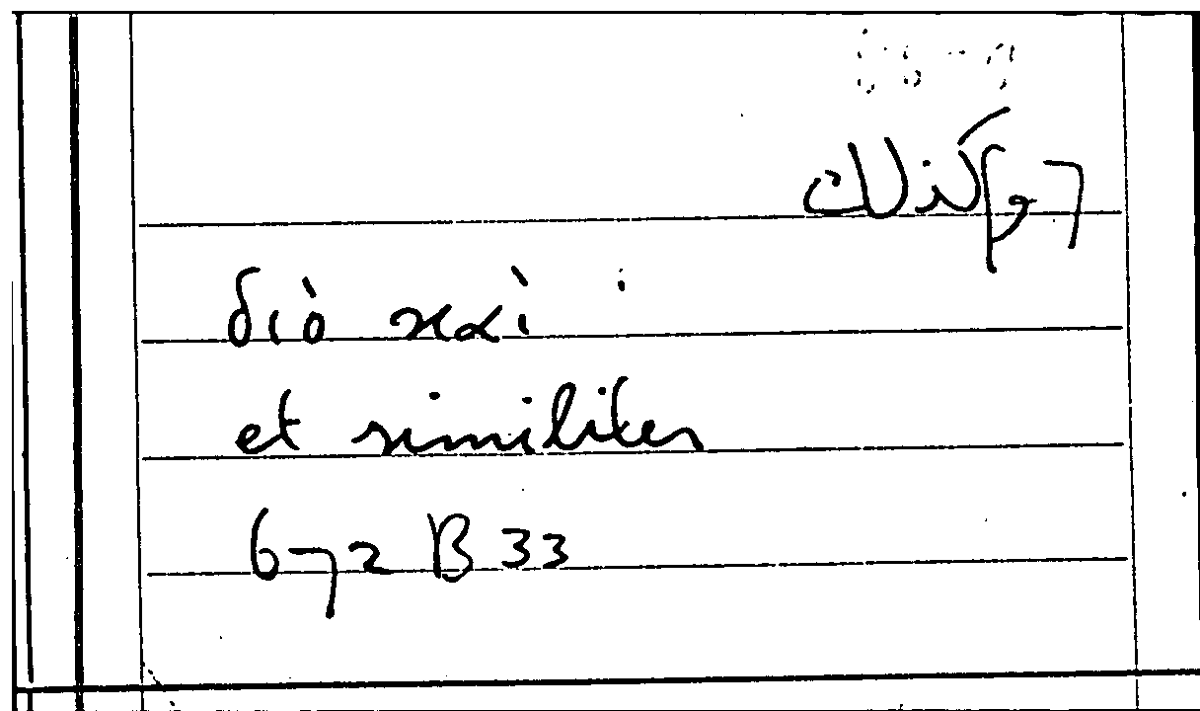 وكذلك
διὸ καὶ
et similiter
672 B 33